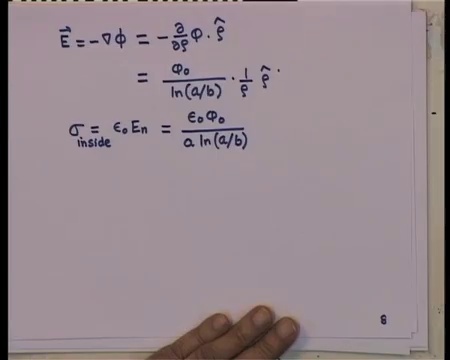 E⃗ = -∇ϕ = - ∂/∂ρ Φ . ρ̂
= Φ₀ / ln(a/b) · 1/ρ ρ̂ .
σ inside = ε₀ Eₙ = ε₀Φ₀ / a ln(a/b)
8